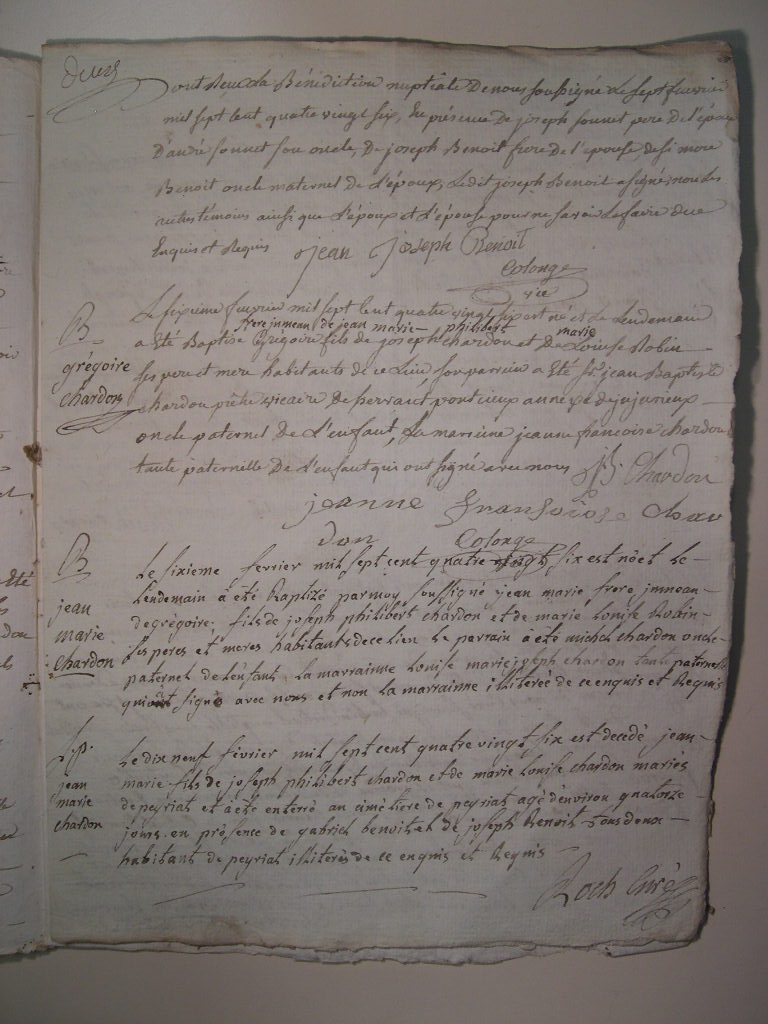 ont Reçu la Bénédiction nuptiale De nous soussigné Le sept fevrier
mil sept Cent quatre vingt six, En présence De joseph sonnet pere de l'époux
D'andré sonnet son oncle, De joseph Benoit frere de l'epouse de si more
Benoit oncle maternel de L'époux, Ledit joseph Benoit a signé, non les
autres témoins ainsi que L'époux et L'épouse pour ne savoir Le faire de ce
Enquis et Requis jean joseph Benoit
Colonge
vic
B
grégoire
chardon
Le sixieme fevrier mil sept Cent quatre vingt six est né et Le Lendemain
frere jumeau de jean marie philibert marie
a Eté Baptisé Grégoire fils de joseph chardon et De Louise Robin
ses pere et mere habitants de ce Lieu son parrain a Eté Sr jean Baptiste
chardon prêtre vicaire De
oncle paternel de L'enfant, La marraine jeanne françoise chardon
tante paternelle De L'enfant qui ont signé avec nous JB. Chardon
jeanne Fransoise char
don Colonge
B
jean
marie
chardon
Le sixieme fevrier mil sept cent quatre vingt six est nôet Le
Lendemain á été Baptizé par moy soussigné jean marie frere jumeau
de grégoire, fils de joseph philibert chardon et de marie Louise Robin
ses peres et meres habitants de ce lieu Le parrain a été michel chardon oncle
paternel de L'enfant La marrainne Louise marie joseph chardon tante paternelle
qui ont signé avec nous et non la marrainne illiterée de ce enquis et Requis
S.p.
jean
marie
chardon
Le dix neuf février mil sept cent quatre vingt six est decedé jean
marie fils de joseph philibert chardon et de marie Louise chardon mariés
de peyriat et a été enterré au cimetiere de peyriat agé d'environ quatorze
jours en présence de gabriel benoit et de joseph Benoit tous deux
habitant de peyriat illiterés de ce enquis et Requis
Roch Curé